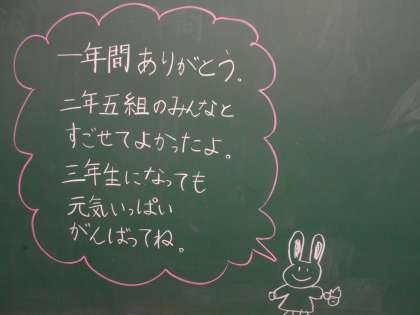 一年間ありがとう。
二年五組のみんなと
すごせてよかったよ。
三年生になっても
元気いっぱい
がんばってね。